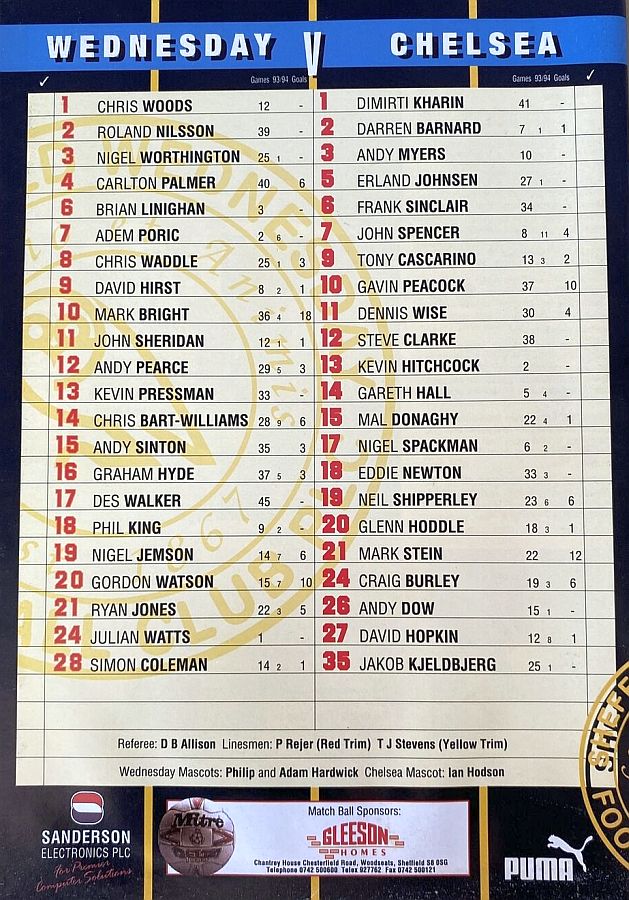 WEDNESDAY V CHELSEA
✓ Games 93/94 Goals Games 93/94 Goals ✓
1 CHRIS WOODS 12 - 1 DIMIRTI KHARIN 41 -
2 ROLAND NILSSON 39 - 2 DARREN BARNARD 7 1 1
3 NIGEL WORTHINGTON 25 1 - 3 ANDY MYERS 10 -
4 CARLTON PALMER 40 6 5 ERLAND JOHNSEN 27 1 -
6 BRIAN LINIGHAN 3 - 6 FRANK SINCLAIR 34 -
7 ADEM PORIC 2 6 - 7 JOHN SPENCER 8 11 4
8 CHRIS WADDLE 25 1 3 9 TONY CASCARINO 13 3 2
9 DAVID HIRST 8 2 1 10 GAVIN PEACOCK 37 10
10 MARK BRIGHT 36 4 18 11 DENNIS WISE 30 4
11 JOHN SHERIDAN 12 1 1 12 STEVE CLARKE 38 -
12 ANDY PEARCE 29 5 3 13 KEVIN HITCHCOCK 2 -
13 KEVIN PRESSMAN 33 - 14 GARETH HALL 5 4 -
14 CHRIS BART-WILLIAMS 28 9 6 15 MAL DONAGHY 22 4 1
15 ANDY SINTON 35 3 17 NIGEL SPACKMAN 6 2 -
16 GRAHAM HYDE 37 5 3 18 EDDIE NEWTON 33 3 -
17 DES WALKER 45 - 19 NEIL SHIPPERLEY 23 6 6
18 PHIL KING 9 2 - 20 GLENN HODDLE 18 3 1
19 NIGEL JEMSON 14 7 6 21 MARK STEIN 22 12
20 GORDON WATSON 15 7 10 24 CRAIG BURLEY 19 3 6
21 RYAN JONES 22 3 5 26 ANDY DOW 15 1 -
24 JULIAN WATTS 1 - 27 DAVID HOPKIN 12 8 1
28 SIMON COLEMAN 14 2 1 35 JAKOB KJELDBJERG 25 1 -
Referee: D B Allison Linesmen: P Rejer (Red Trim) T J Stevens (Yellow Trim)
Wednesday Mascots: Philip and Adam Hardwick Chelsea Mascot: Ian Hodson
SANDERSON
ELECTRONICS PLC
for Premier
Computer Solutions
Mitre
Match Ball Sponsors:
GLEESON
HOMES
Chantrey House Chesterfield Road, Woodseats, Sheffield S8 0SG
Telephone 0742 500600 Telex 927762 Fax 0742 500121
PUMA
SHEFF
FOO